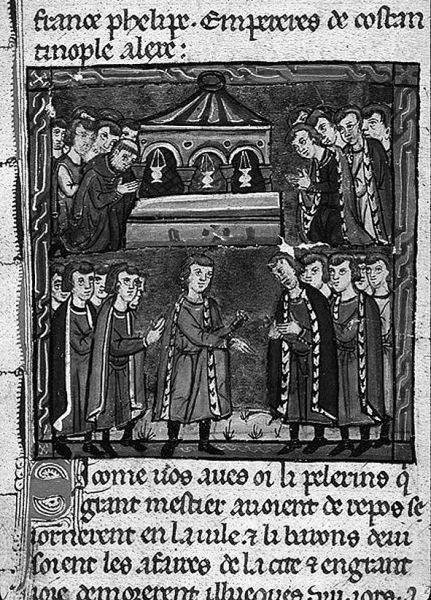 france phelipe. Empereres de costan
tinople alexe:
Si come vos aves oi li pelerins q̄
grant mestier avoient de repos se
iornerent en la vile ⁊ li barons devi
soient les afaires de la cite ⁊ en grant
ioie demorerent illueques .viii. iors.